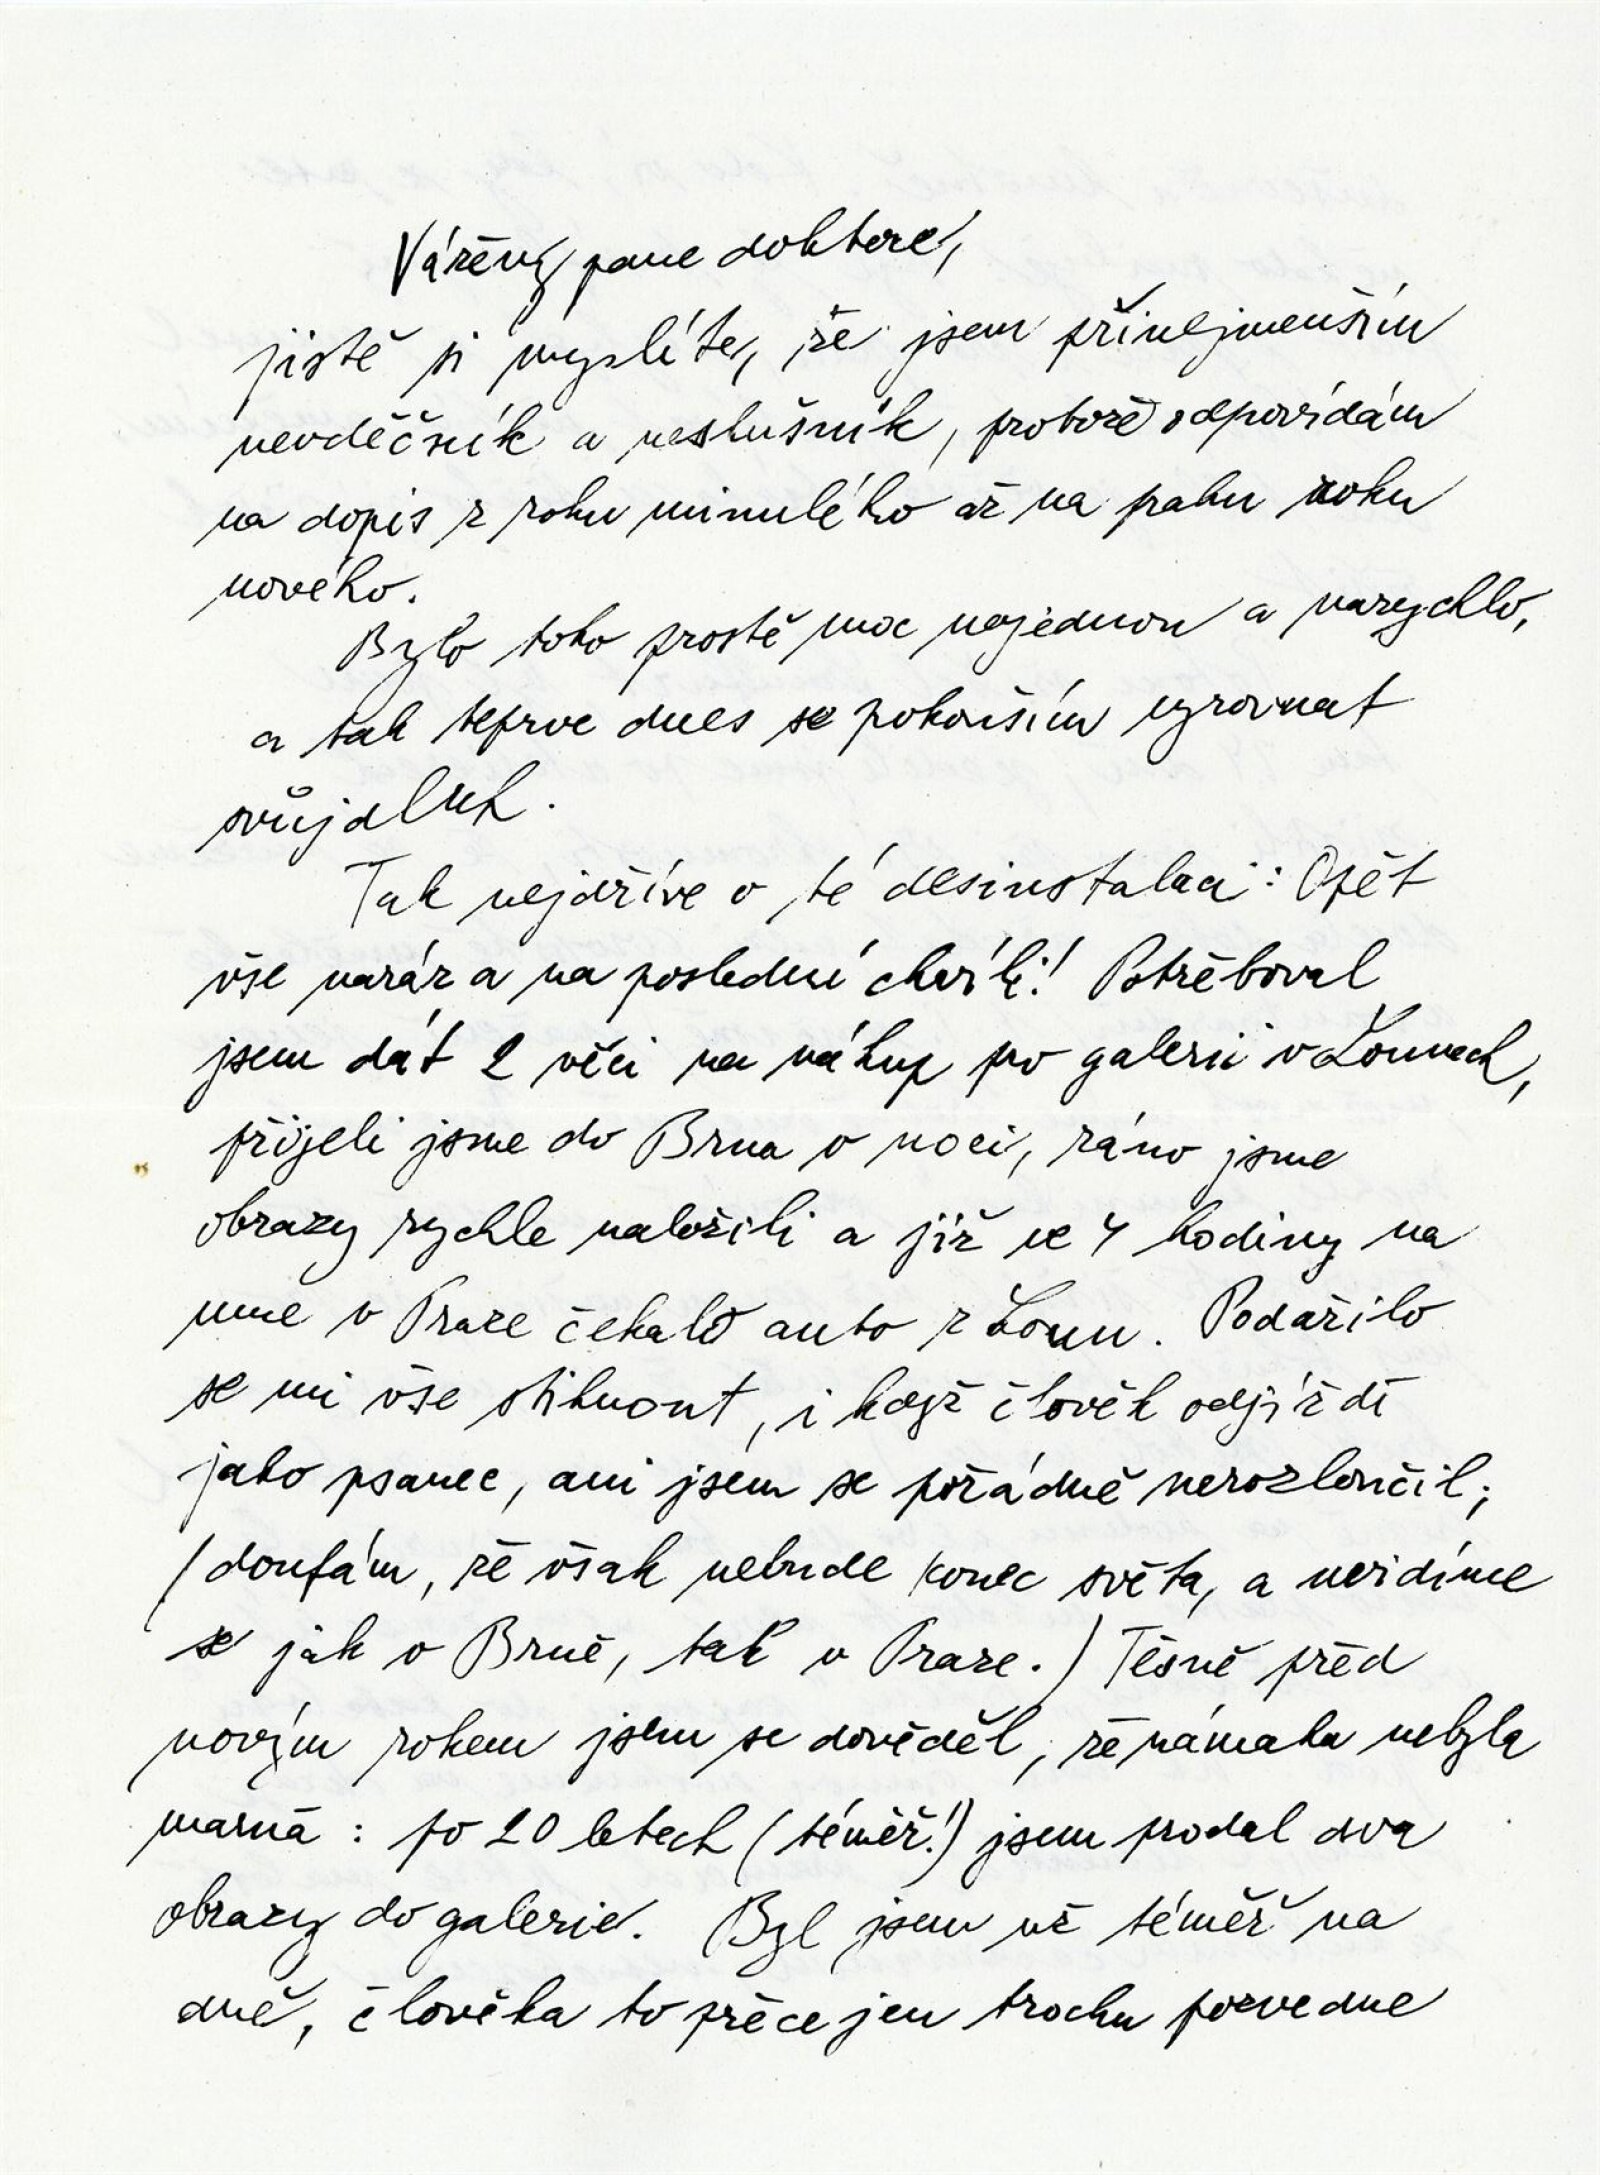 Vážený pane doktore,
jistě si myslíte, že jsem přinejmenším
nevděčník a neslušník, protože odpovídám
na dopis z roku minulého až na prahu roku
nového.
Bylo toho prostě moc najednou a narychlo,
a tak teprve dnes se pokouším vyrovnat
svůj dluh.
Tak nejdříve o té desinstalaci: Opět
vše naráz a na poslední chvíli! Potřeboval
jsem dát 2 věci na nákup pro galerii v Lounech,
přijeli jsme do Brna v noci, ráno jsme
obrazy rychle naložili a již ve 4 hodiny na
mne v Praze čekalo auto z Loun. Podařilo
se mi vše stihnout, i když člověk odjíždí
jako psanec, ani jsem se pořádně nerozloučil;
(doufám, že však nebude konec světa, a uvidíme
se jak v Brně, tak v Praze.) Těsně před
novým rokem jsem se dověděl, že námaha nebyla
marná: po 20 letech (téměř!) jsem prodal dva
obrazy do galerie. Byl jsem už téměř na
dně, člověka to přece jen trochu pozvedne